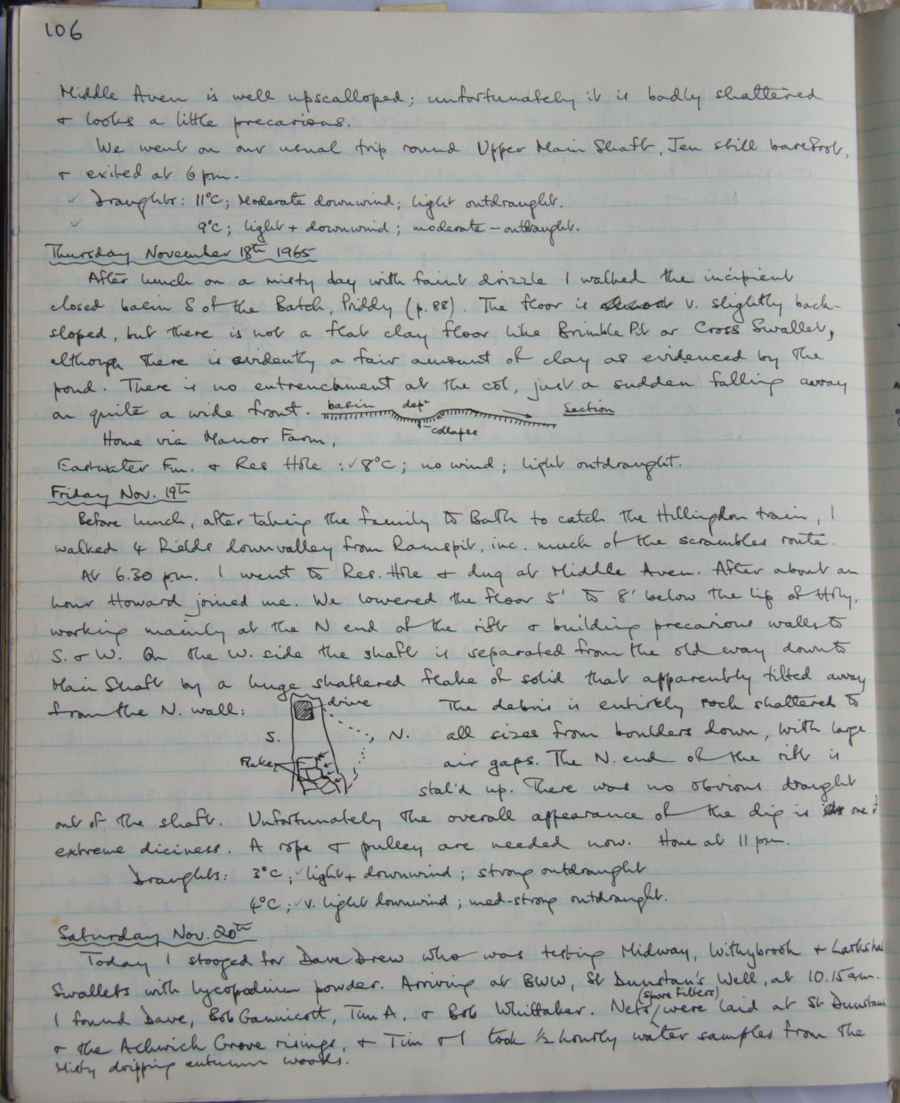 106
Middle Aven is well upscalloped; unfortunately it is badly shattered
& looks a little precarious.
We went on our usual trip round Upper Main Shaft, Jen still barefoot,
& exited at 6 pm.
✓ Draughts: 11°C; Moderate downwind; light outdraught.
✓ 9°C; light + downwind; moderate - outdraught.
Thursday November 18th 1965
After lunch on a misty day with faint drizzle I walked the incipient
closed basin S of the Batch, Priddy (p.88). The floor is v. slightly back-
sloped, but there is not a flat clay floor like Brimble Pit or Cross Swallet,
although there is evidently a fair amount of clay as evidenced by the
pond. There is no entrenchment at the col, just a sudden falling away
on quite a wide front. basin depn Section
collapse
Home via Manor Farm,
Eastwater Fm. & Res Hole : ✓ 8°C; no wind; light outdraught.
Friday Nov. 19th
Before lunch, after taking the family to Bath to catch the Hillingdon train, I
walked 4 fields downvalley from Ramspit, inc. much of the scrambles route.
At 6.30 pm. I went to Res. Hole & dug at Middle Aven. After about an
hour Howard joined me. We lowered the floor 5' to 8' below the lip of
working mainly at the N end of the rift & building precarious walls to
S. & W. On the W. side the shaft is separated from the old way down to
Main Shaft by a huge shattered flake of solid that apparently tilted away
from the N. wall: drive The debris is entirely rock shattered to
S. N. all sizes from boulders down, with large
Flake air gaps. The N. end of the rift is
stal'd up. There was no obvious draught
out of the shaft. Unfortunately the overall appearance of the dig is one of
extreme diciness. A rope & pulley are needed now. Home at 11 pm.
Draughts: 3°C; ✓ light + downwind; strong outdraught
4°C; ✓ v. light downwind; med-strong outdraught.
Saturday Nov. 20th
Today I stooged for Dave Drew who was testing Midway, Withybrook & Larkshall
Swallets with lycopodium powder. Arriving at BWW, St Dunstan's Well, at 10.15 am.
I found Dave, Bob Gannicott, Tim A. & Bob Whittaker. Nets (spore filters) were laid at St Dunstans
& the Ashwick Grove risings, & Tim & I took ½ hourly water samples from the
misty dripping autumn woods.